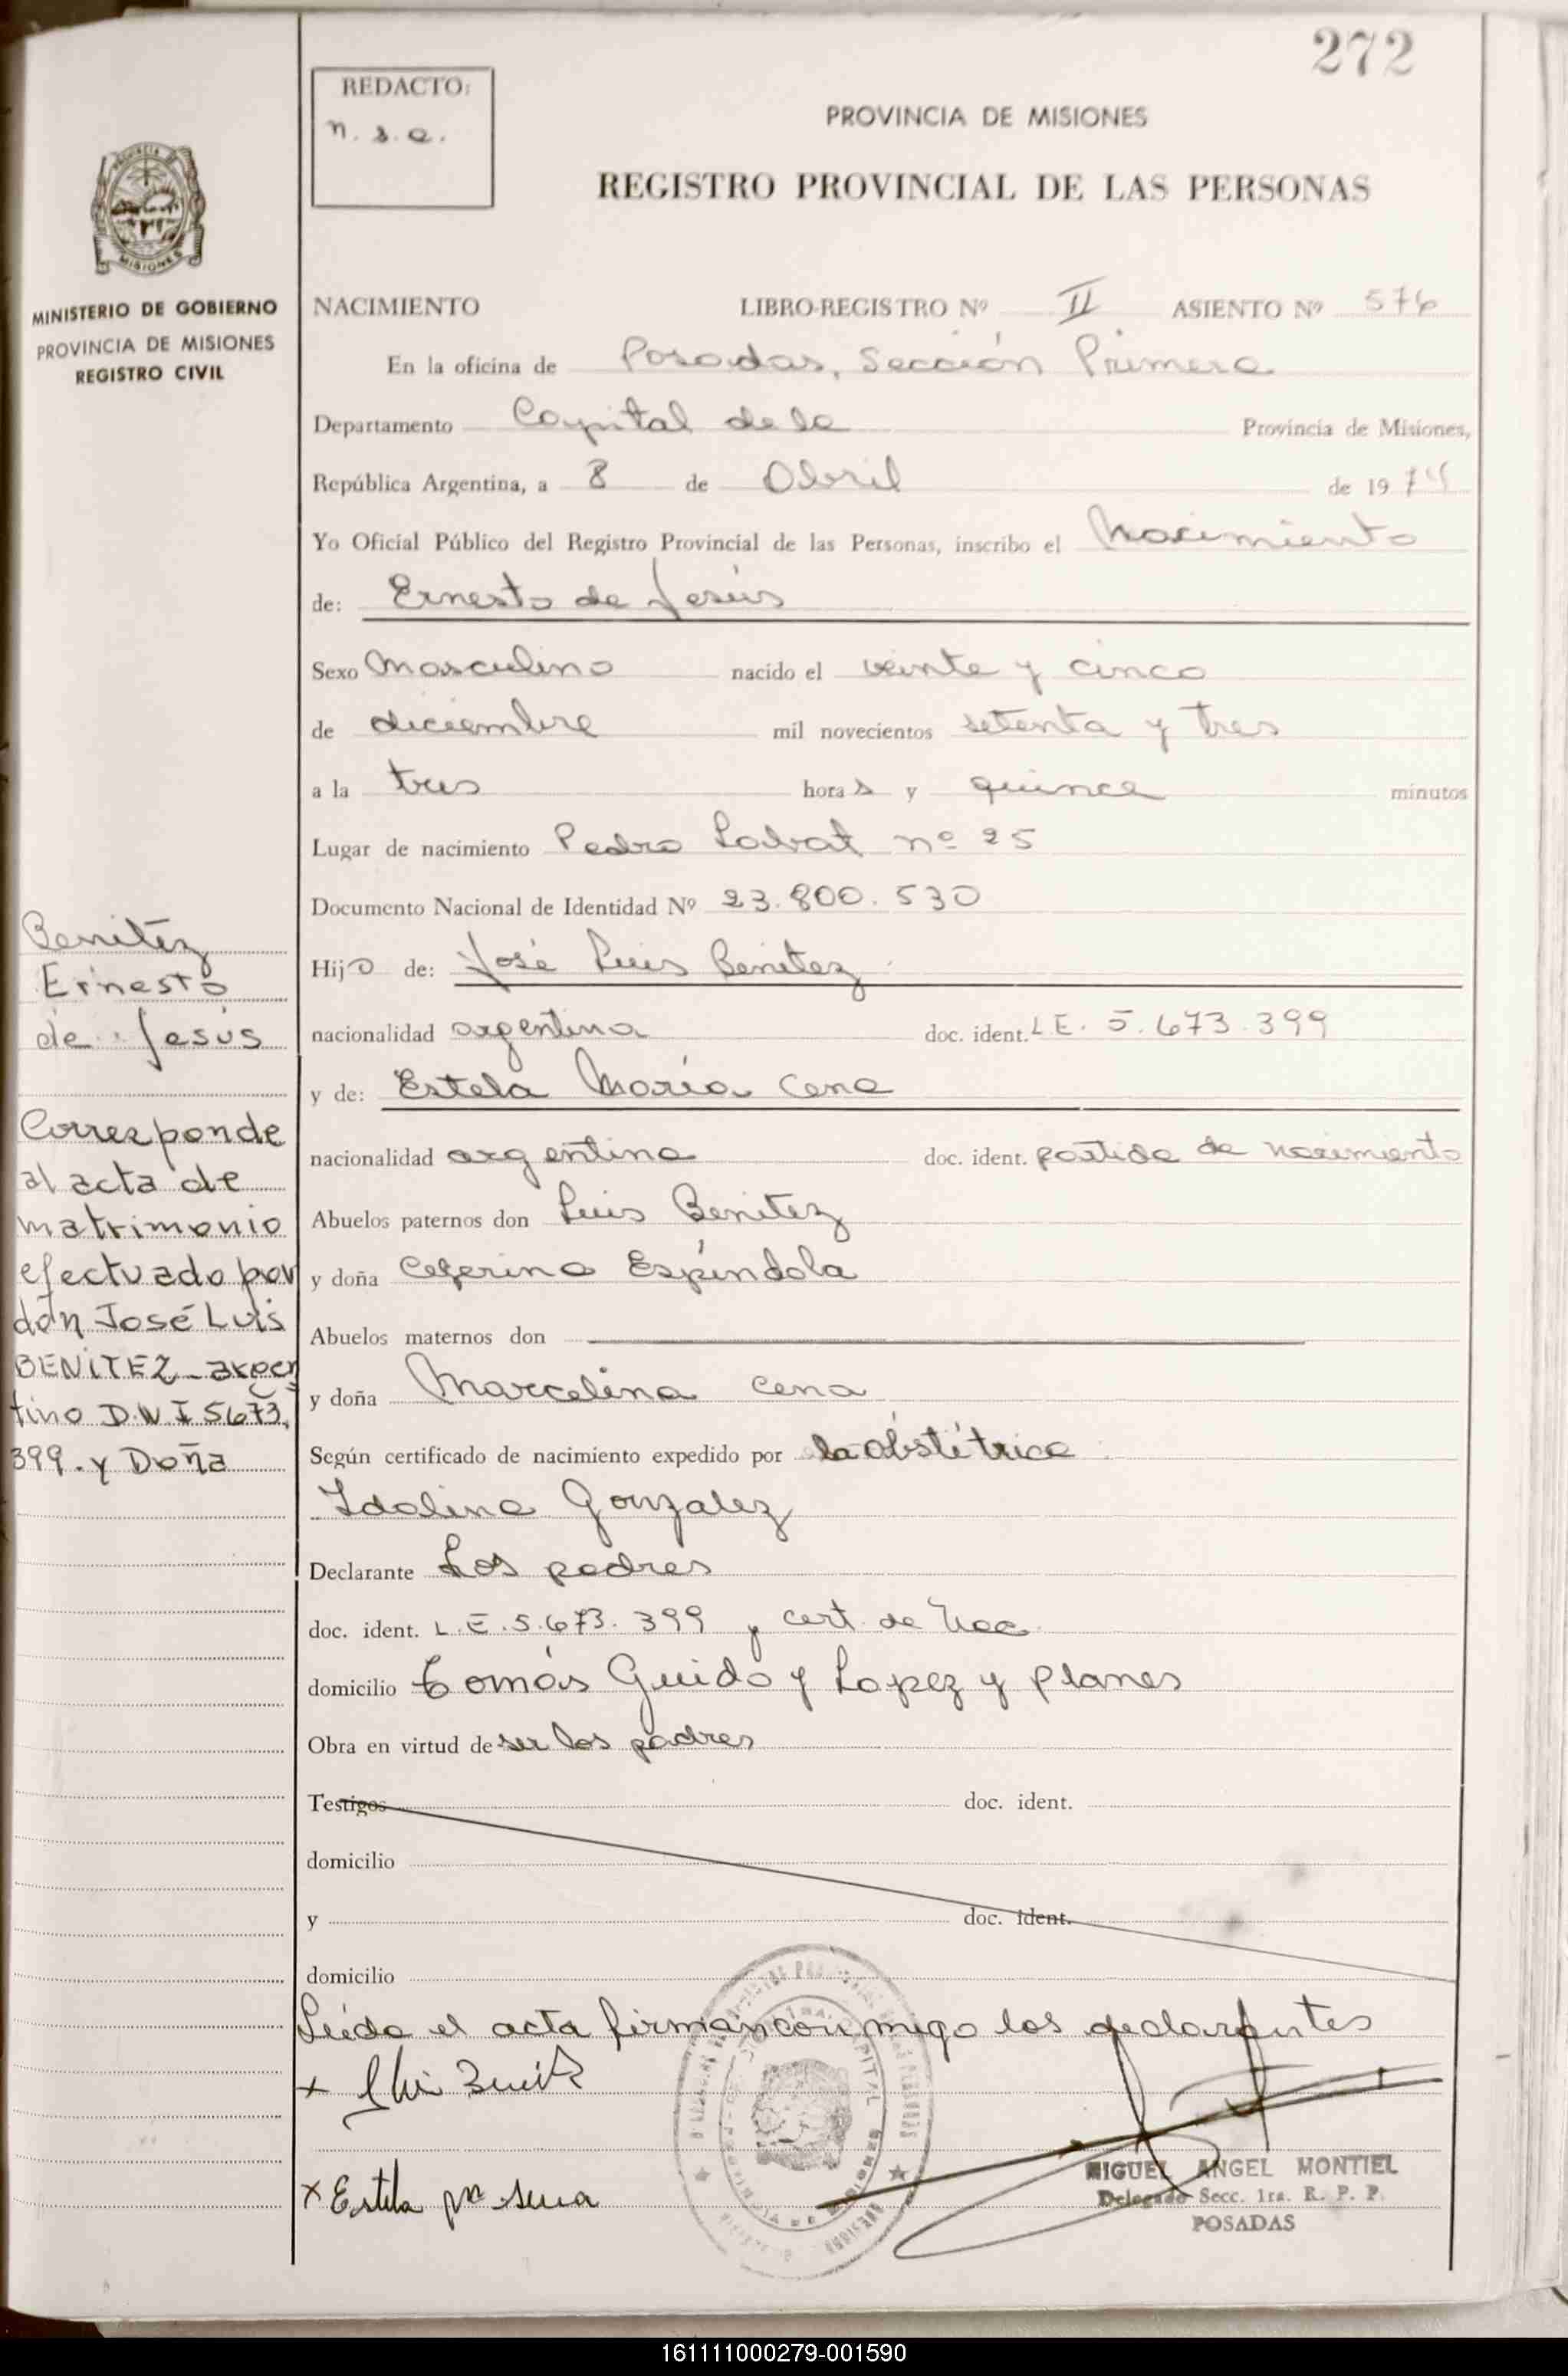 272
REDACTO:
n. s. e.
PROVINCIA DE MISIONES
REGISTRO PROVINCIAL DE LAS PERSONAS
MISIONES
MINISTERIO DE GOBIERNO
PROVINCIA DE MISIONES
REGISTRO CIVIL
NACIMIENTO LIBRO-REGISTRO Nº II ASIENTO Nº 576
En la oficina de Posadas, Sección Primera
Departamento Capital de la Provincia de Misiones,
República Argentina, a 8 de Abril de 1974
Yo Oficial Público del Registro Provincial de las Personas, inscribo el Nacimiento
de: Ernesto de Jesús
Sexo Masculino nacido el veinte y cinco
de diciembre mil novecientos setenta y tres
a la tres horas y quince minutos
Lugar de nacimiento Pedro Labat nº 25
Documento Nacional de Identidad Nº 23.800.530
Hijo de: José Luis Benitez
nacionalidad argentina doc. ident. L.E. 5.673.399
y de: Estela María Cena
nacionalidad argentina doc. ident. partida de nacimiento
Abuelos paternos don Luis Benitez
y doña Ceferina Espíndola
Abuelos maternos don
y doña Marcelina Cena
Según certificado de nacimiento expedido por la obstétrica
Idalina Gonzalez
Declarante Los padres
doc. ident. L.E. 5.673.399 y cert. de Nac
domicilio Tomás Guido y Lopez y planes
Obra en virtud de ser los padres
Testigos doc. ident.
domicilio
y doc. ident.
domicilio
Leída el acta firman conmigo los declarantes
x
x Estela
MIGUEL ANGEL MONTIEL
Delegado Secc. 1ra. R. P. P.
POSADAS
Benitez
Ernesto
de Jesús
Corresponde
al acta de
matrimonio
efectuado por
don José Luis
BENITEZ - argen
tino D.N.I 5673.
399. y Doña
161111000279-001590